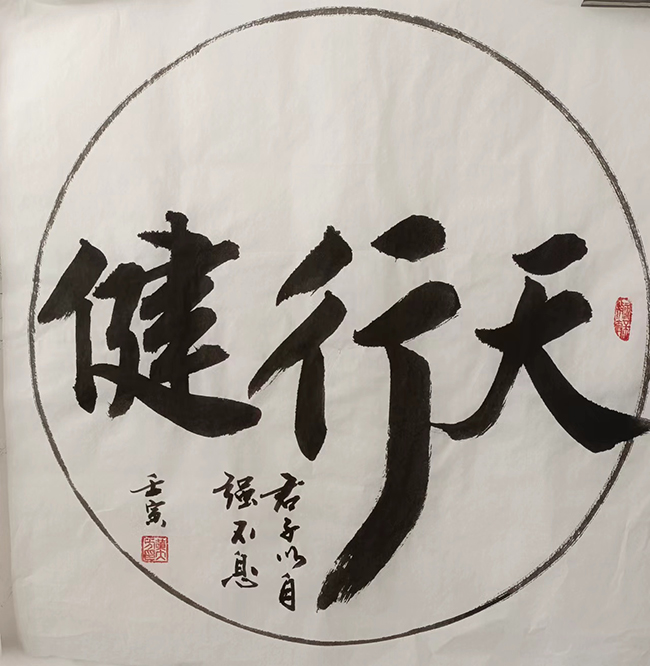 天行健
君子以自
强不息
壬寅